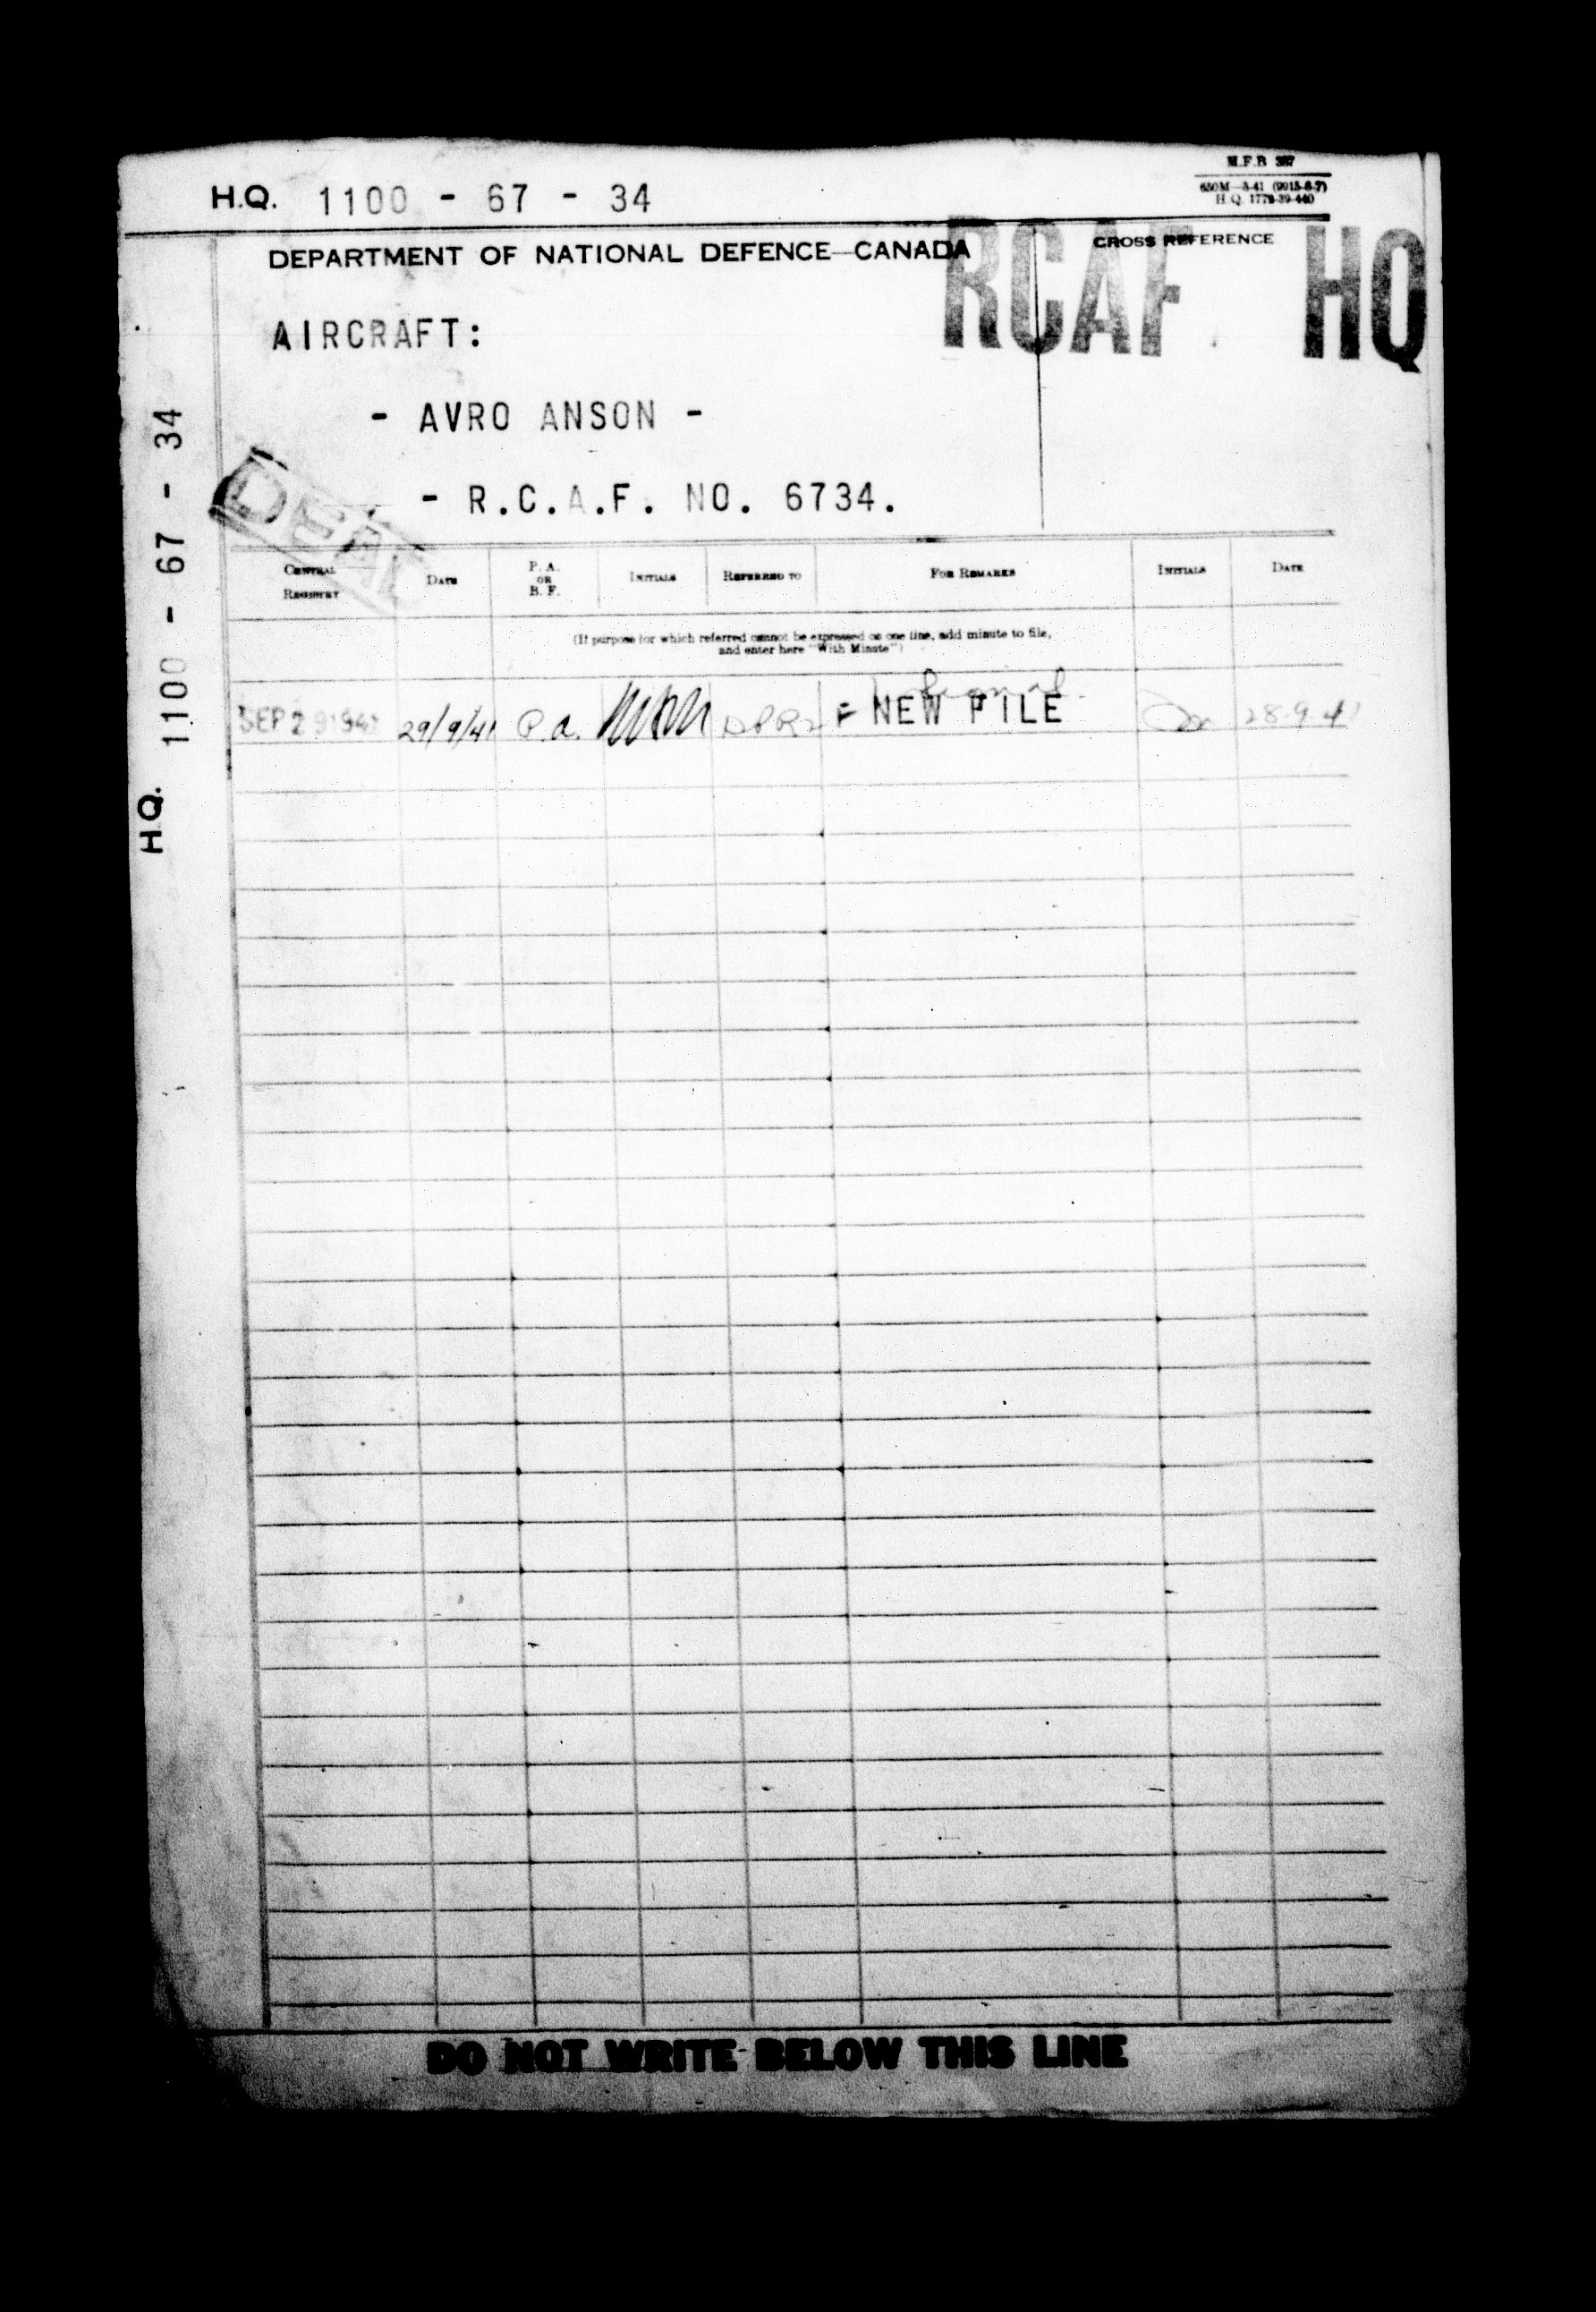 M.F.B 387
H.Q. 1100 - 67 - 34
650M—3-41 (9915-8-7)
H.Q. 1772-39-440
DEPARTMENT OF NATIONAL DEFENCE—CANADA
CROSS REFERENCE
RCAF HQ
AIRCRAFT:
- AVRO ANSON -
- R.C.A.F. NO. 6734.
CENTRAL REGISTRY
DATE
P. A. OR B. F.
INITIALS
REFERRED TO
FOR REMARKS
INITIALS
DATE
(If purpose for which referred cannot be expressed on one line, add minute to file,
and enter here "With Minute")
SEP 29 1941 29/9/41 P.a. F NEW FILE Signal 28-9-41
H.Q. 1100 - 67 - 34
DO NOT WRITE BELOW THIS LINE